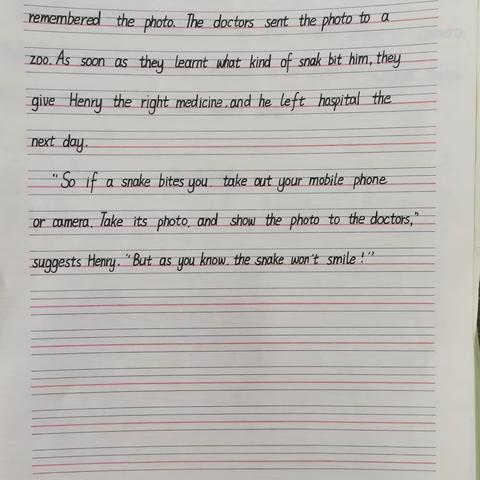 remembered the photo. The doctors sent the photo to a
zoo. As soon as they learnt what kind of snak bit him, they
give Henry the right medicine. and he left hospital the
next day.
"So if a snake bites you. take out your mobile phone
or camera. Take its photo. and show the photo to the doctors,"
suggests Henry. "But as you know. the snake won't smile!"